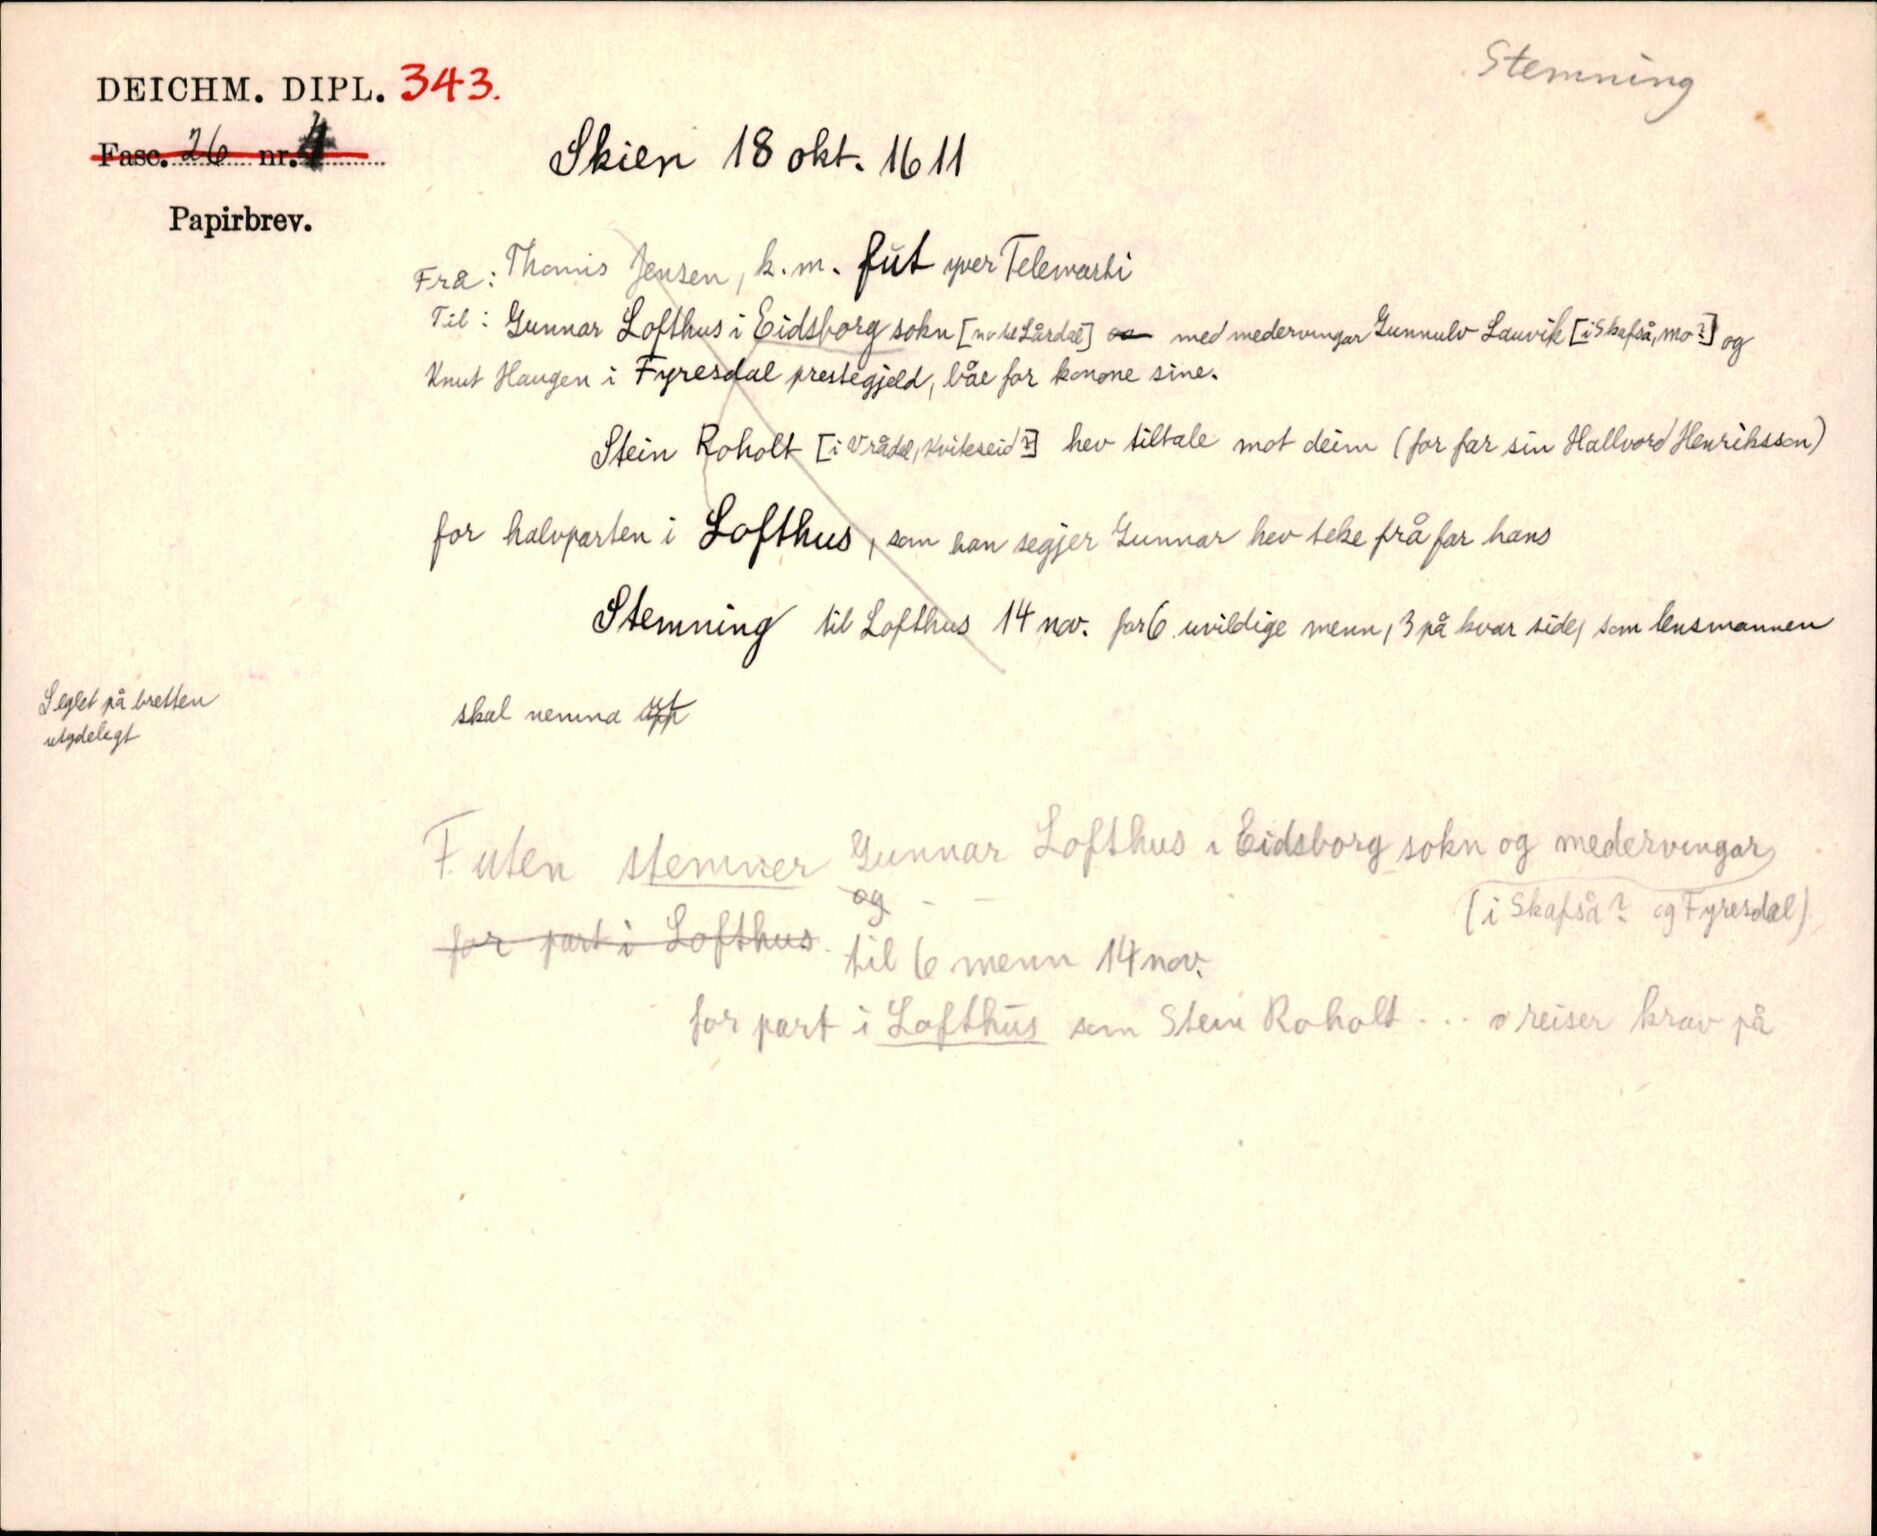 Stemning
DEICHM. DIPL. 343.
Fasc. 26 nr. 4
Papirbrev.
Skien 18 okt. 1611
Frå: Thomis Jensen, k. m. fut yver Telemarki
Til: Gunnar Lofthus i Eidsborg sokn [no til Lårdal] med medervingar Gunnulv Lauvik [i Skafså, Mo?] og
Knut Haugen i Fyresdal prestegjeld, båe for konone sine.
Stein Roholt [i Vrådal, Kviteseid?] hev tiltale mot deim (for far sin Hallvord Henriksson)
for halvparten i Lofthus, som han segjer Gunnar hev teke frå far hans
Stemning til Lofthus 14 nov. for 6 uvildige menn, 3 på kvar side, som lensmannen
skal nemna upp
Seglet på bretten
utydelegt
Futen stemner Gunnar Lofthus i Eidsborg sokn og medervingar
og
(i Skafså? og Fyresdal)
for part i Lofthus
til 6 menn 14 nov.
for part i Lofthus som Stein Roholt ... reiser krav på